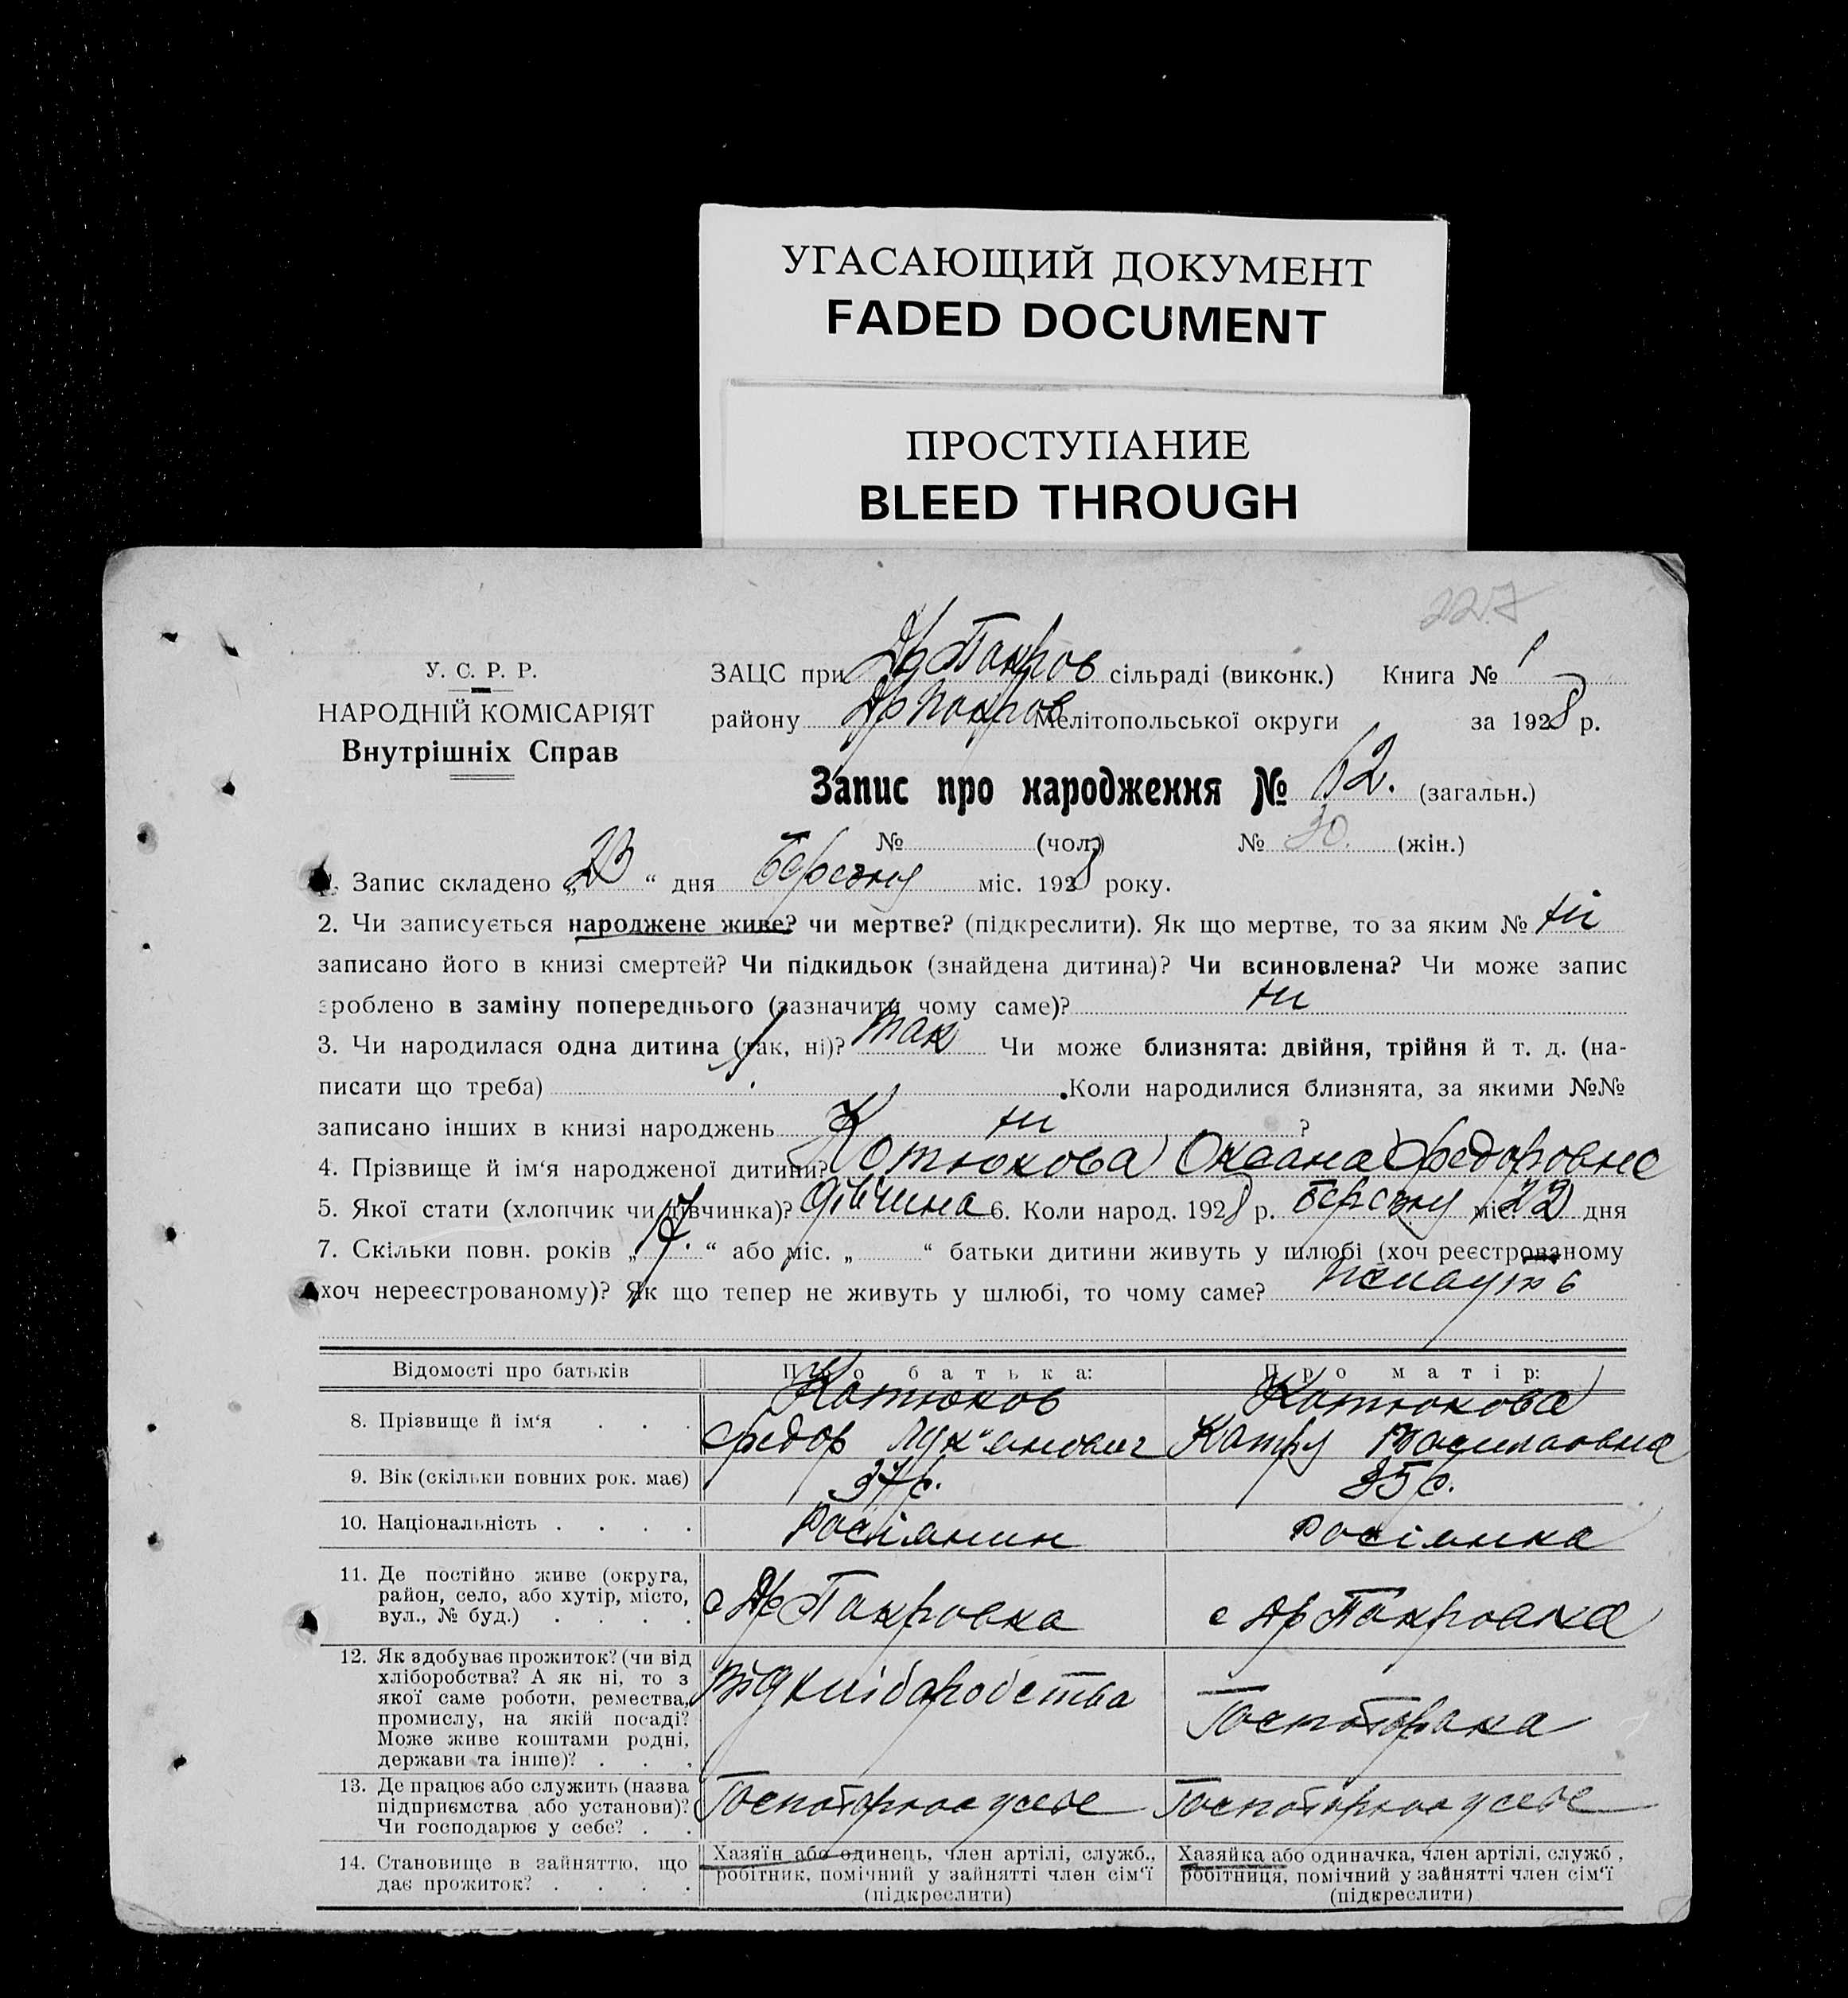 УГАСАЮЩИЙ ДОКУМЕНТ
FADED DOCUMENT
ПРОСТУПАНИЕ
BLEED THROUGH
227
У. С. Р. Р.
НАРОДНІЙ КОМІСАРІЯТ
Внутрішніх Справ
ЗАЦС при Др Покров сільраді (виконк.) Книга № 1
району Др Покров Мелітопольської округи за 1928 р.
Запис про народження № 62. (загальн.)
№ (чол.) № 30. (жін.)
1. Запис складено „23“ дня Березня міс. 1928 року.
2. Чи записується народжене живе? чи мертве? (підкреслити). Як що мертве, то за яким № ні
записано його в книзі смертей? Чи підкидьок (знайдена дитина)? Чи всиновлена? Чи може запис
зроблено в заміну попереднього (зазначити чому саме)? ни
3. Чи народилася одна дитина (так, ні)? так Чи може близнята: двійня, трійня й т. д. (на-
писати що треба) Коли народилися близнята, за якими №№
записано інших в книзі народжень ни ?
4. Прізвище й ім‘я народженої дитини? Котюкова Оксана Федоровно
5. Якої стати (хлопчик чи дівчинка)? дівчина 6. Коли народ. 1928 р. Березня міс. 22 дня
7. Скільки повн. років „17.“ або міс. „ “ батьки дитини живуть у шлюбі (хоч реєстрованому
хоч нереєстрованому)? Як що тепер не живуть у шлюбі, то чому саме?
Відомості про батьків Про батька: Про матір:
8. Прізвище й ім‘я . . . Котюков Котюкова
Федор Лук"янович Катря Василовна
9. Вік (скільки повних рок. має) 37 р. 35 р.
10. Національність . . . . Росіянин Росіянка
11. Де постійно живе (округа,
район, село, або хутір, місто,
вул., № буд.) . . . . с Др Покровка с Др Покровка
12. Як здобуває прожиток? (чи від
хліборобства? А як ні, то з
якої саме роботи, ремества,
промислу, на якій посаді?
Може живе коштами родні,
держави та інше)? . . . Від хліборобства Господорка
13. Де працює або служить (назва
підприємства або установи)?
Чи господарює у себе? . . Господорює у себе Господорює у себе
14. Становище в зайняттю, що
дає прожиток? . . . .
Хазяїн або одинець, член артілі, служб.,
робітник, помічний у зайнятті член сім‘ї
(підкреслити)
Хазяйка або одиначка, член артілі, служб.,
робітниця, помічний у зайнятті член сім‘ї
(підкреслити)